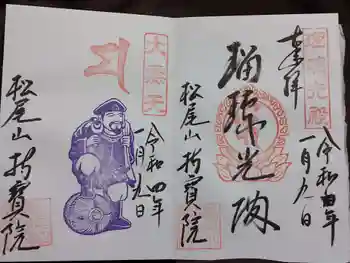 奉拝
瑠璃光殿
令和四年
一月九日
松尾山 持寶院
大黒天
令和四年
一月九日
松尾山 持寶院